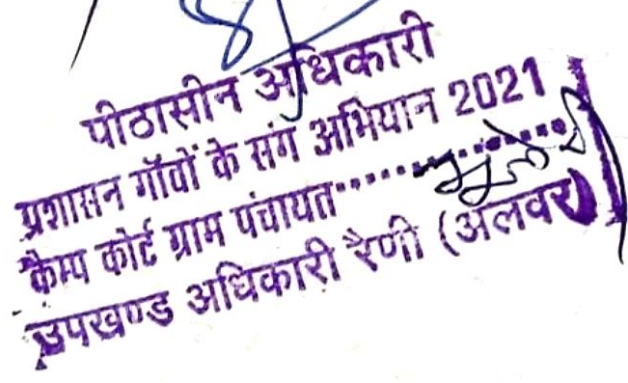 पीठासीन अधिकारी
प्रशासन गॉवों के संग अभियान 2021
कैम्प कोर्ट ग्राम पंचायत..............
उपखण्ड अधिकारी रैणी (अलवर)